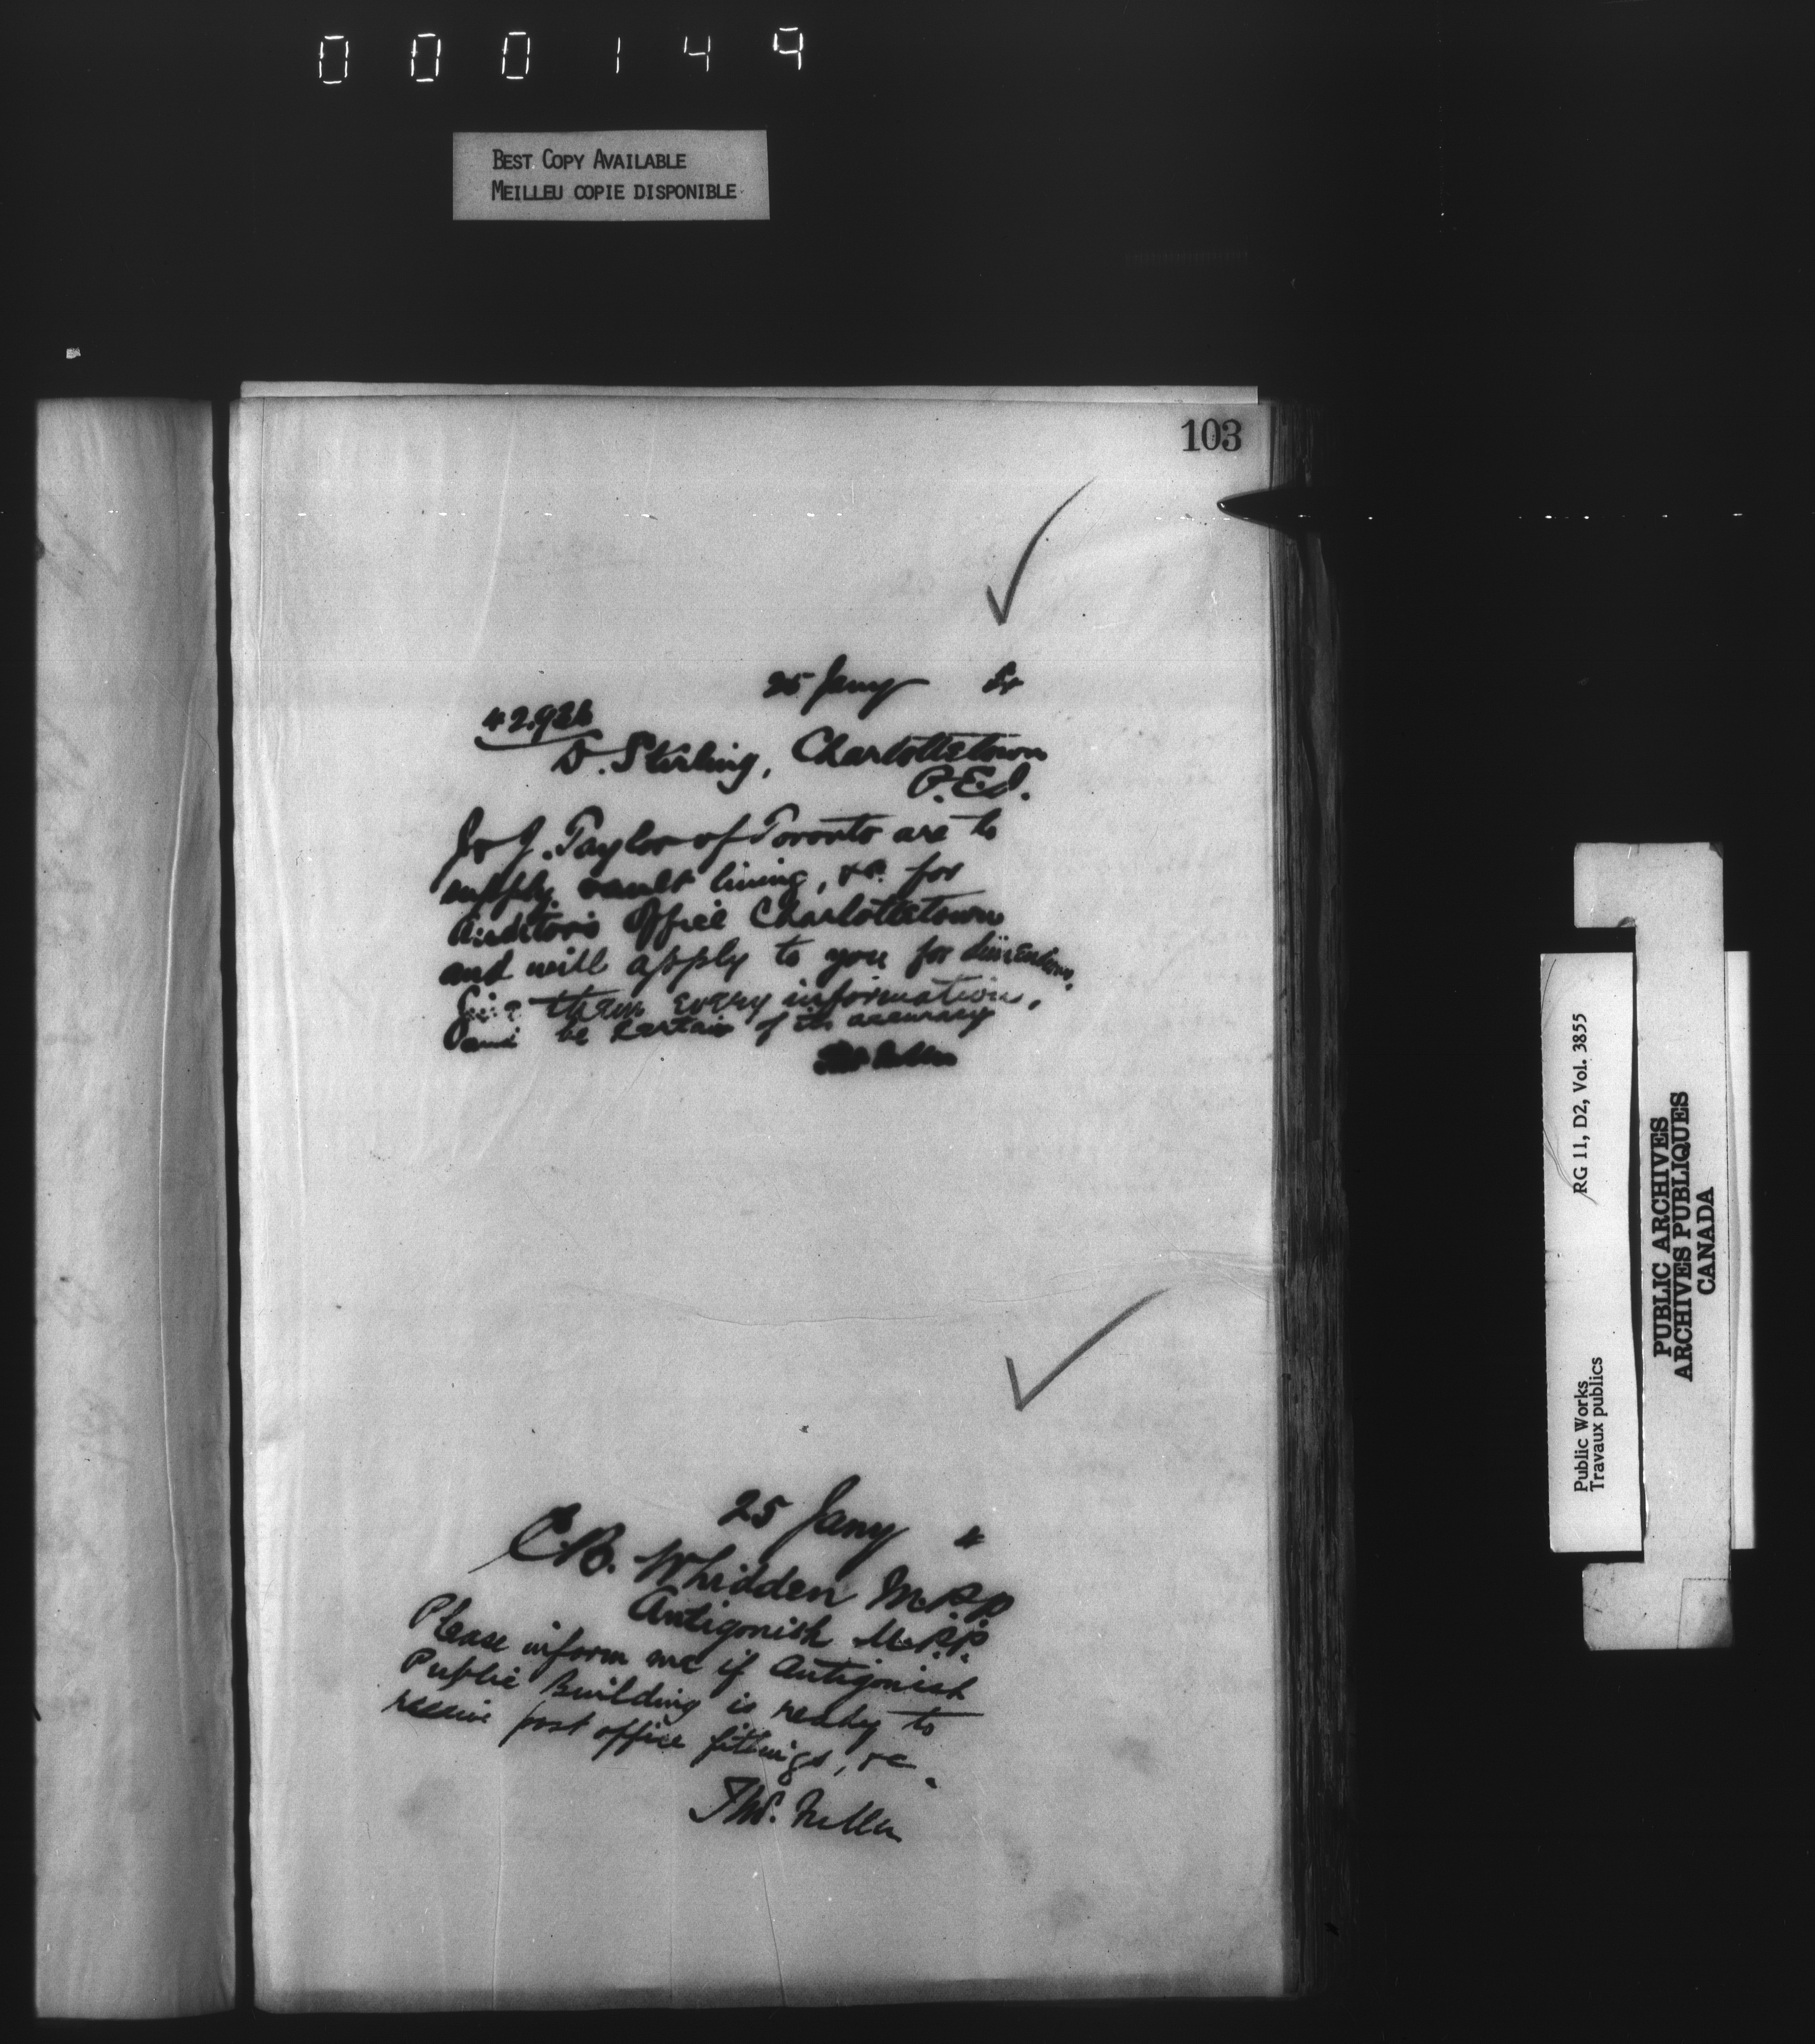 000149
BEST COPY AVAILABLE
MEILLEU COPIE DISPONIBLE
103
25 Jany
42,926
D. Stirling, Charlottetown
P.E.I.
J & J. Taylor of Toronto are to
supply vault lining, &c. for
Auditor's Office Charlottetown
and will apply to you for dimensions.
Give them every information,
and be certain of its accuracy
Thos Fuller
25 Jany
C.B. Whidden M.P.P
Antigonish M.P.P.
Please inform me if Antigonish
Public Building is ready to
receive post office fittings, &c.
Thos. Fuller
RG 11, D2, Vol. 3855
Public Works
Travaux publics
PUBLIC ARCHIVES
ARCHIVES PUBLIQUES
CANADA